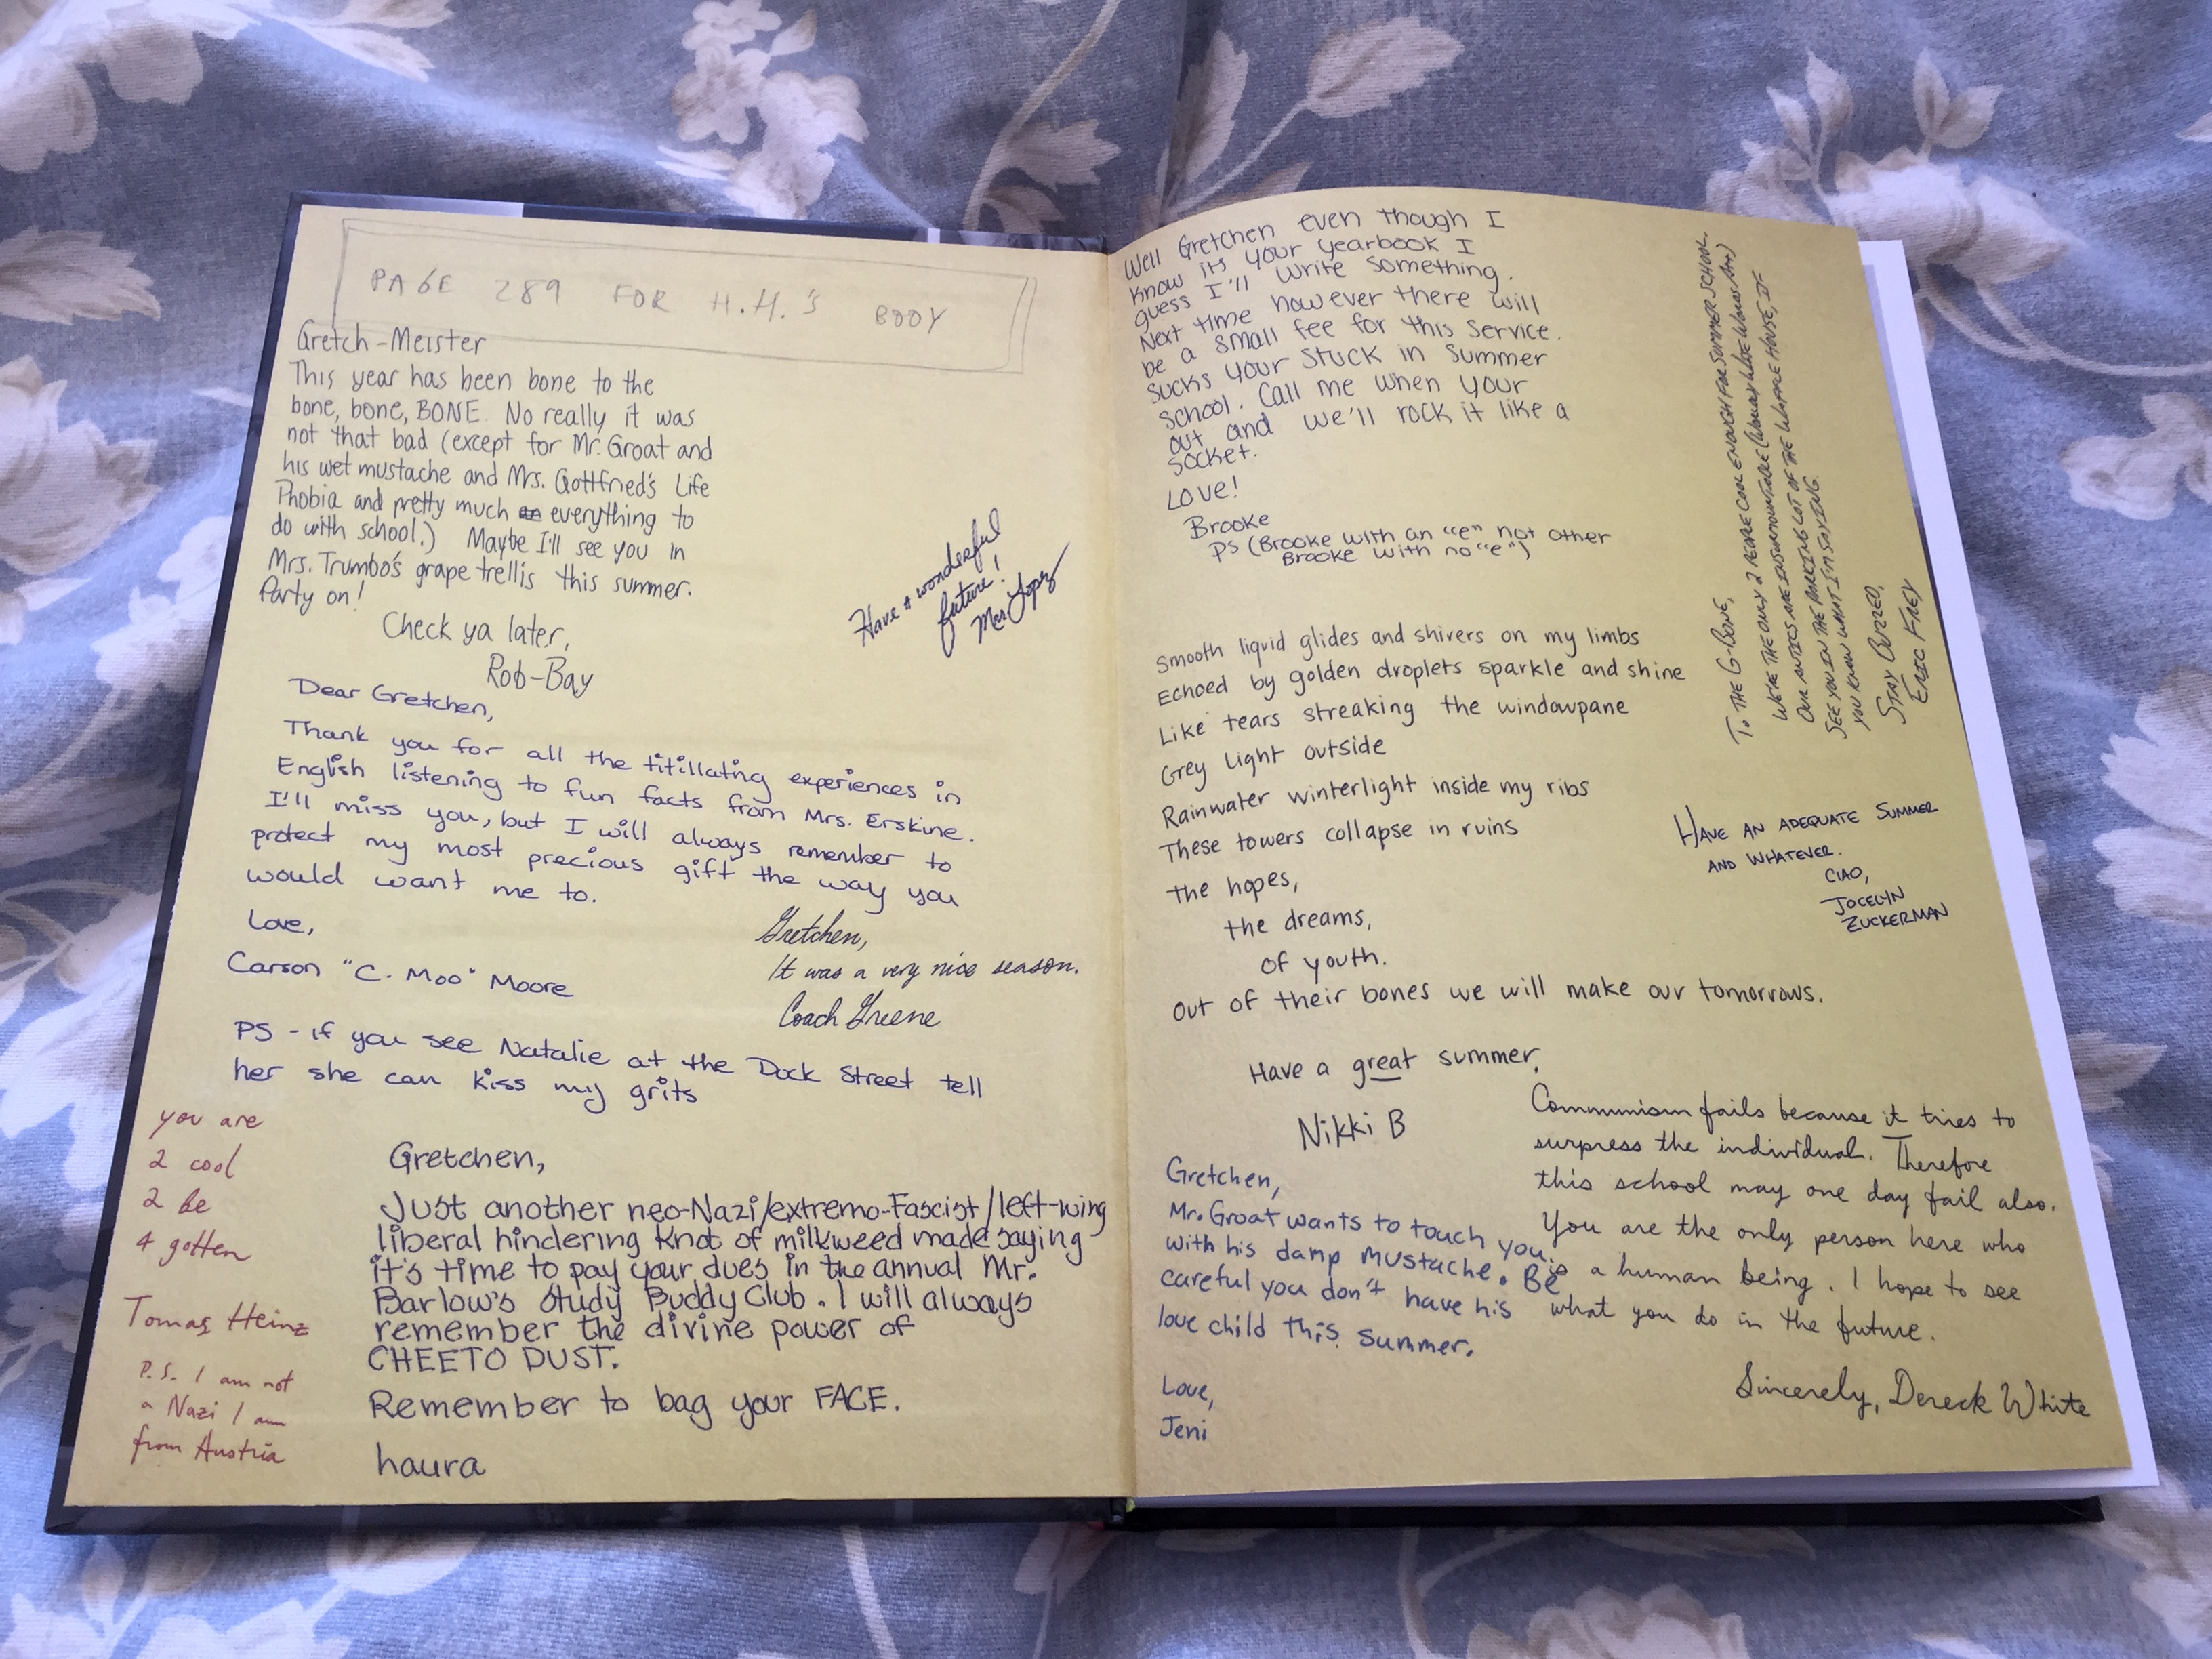 PAGE 289 FOR H.H.'S BODY
Gretch-Meister
This year has been bone to the
bone, bone, BONE. No really it was
not that bad (except for Mr. Groat and
his wet mustache and Mrs. Gottfried's Life
Phobia and pretty much everything to
do with school.) Maybe I'll see you in
Mrs. Trumbo's grape trellis this summer.
Party on!
Check ya later,
Rob-Bay
Have a wonderful
future!
Mrs. Lopez
Dear Gretchen,
Thank you for all the titillating experiences in
English listening to fun facts from Mrs. Erskine.
I'll miss you, but I will always remember to
protect my most precious gift the way you
would want me to.
Love,
Carson "C. Moo" Moore
PS - if you see Natalie at the Dock Street tell
her she can kiss my grits
Gretchen,
It was a very nice season.
Coach Greene
you are
2 cool
2 be
4 gotten
Tomas Heinz
P.S. I am not
a Nazi I am
from Austria
Gretchen,
Just another neo-Nazi/extremo-Fascist/left-wing
liberal hindering knot of milkweed made saying
it's time to pay your dues in the annual Mr.
Barlow's Study Buddy Club. I will always
remember the divine power of
CHEETO DUST.
Remember to bag your FACE.
haura
Well Gretchen even though I
know its your yearbook I
guess I'll write something.
Next time however there will
be a small fee for this service.
Sucks your stuck in summer
school. Call me when your
out and we'll rock it like a
socket.
Love!
Brooke
PS (Brooke with an "e" not other
Brooke with no "e")
To the G-Bone,
We're the only 2 people cool enough for summer school.
Our antics are insurmountable (Woman like Woman Art)
See you in the parking lot of the Waffle House, if
you know what I'm saying
Stay Buzzed,
Eric Frey
Smooth liquid glides and shivers on my limbs
Echoed by golden droplets sparkle and shine
Like tears streaking the windowpane
Grey light outside
Rainwater winterlight inside my ribs
These towers collapse in ruins
the hopes,
the dreams,
of youth.
out of their bones we will make our tomorrows.
Have a great summer,
Nikki B
Have an adequate summer
and whatever.
Ciao,
Jocelyn
Zuckerman
Gretchen,
Mr. Groat wants to touch you
with his damp mustache. Be
careful you don't have his
love child this summer.
Love,
Jeni
Communism fails because it tries to
surpress the individual. Therefore
this school may one day fail also.
You are the only person here who
is a human being. I hope to see
what you do in the future.
Sincerely, Dereck White